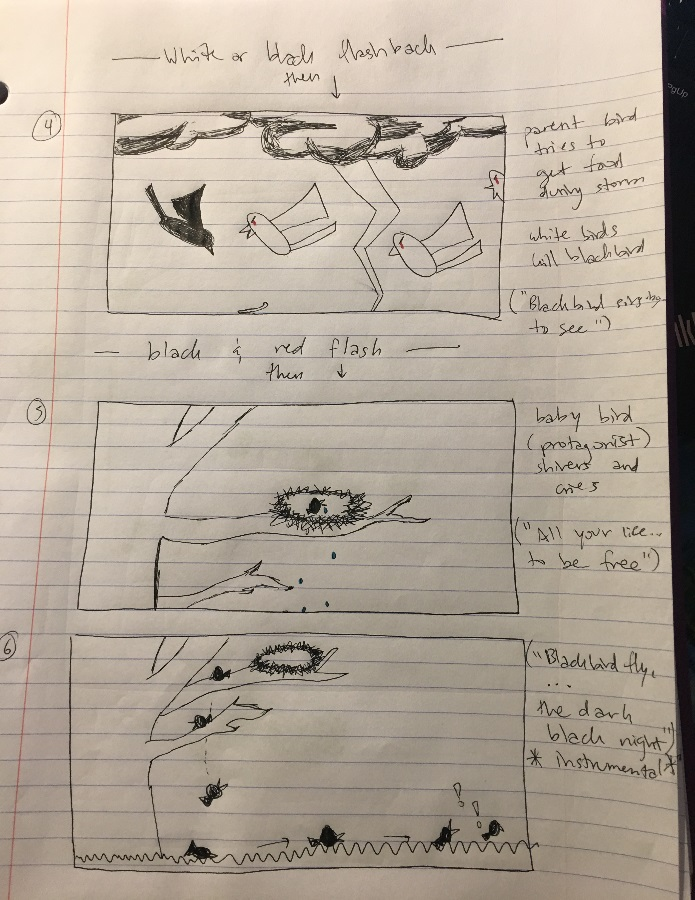 — White or black flashback —
then ↓
④
parent bird
tries to
get food
during storm
white birds
kill blackbird
("Blackbird singing
to see")
— black & red flash —
then ↓
⑤
baby bird
(protagonist)
shivers and
cries
("All your life...
to be free")
⑥
("Blackbird fly,
...
the dark
black night")
* instrumental *
! !
PgUp